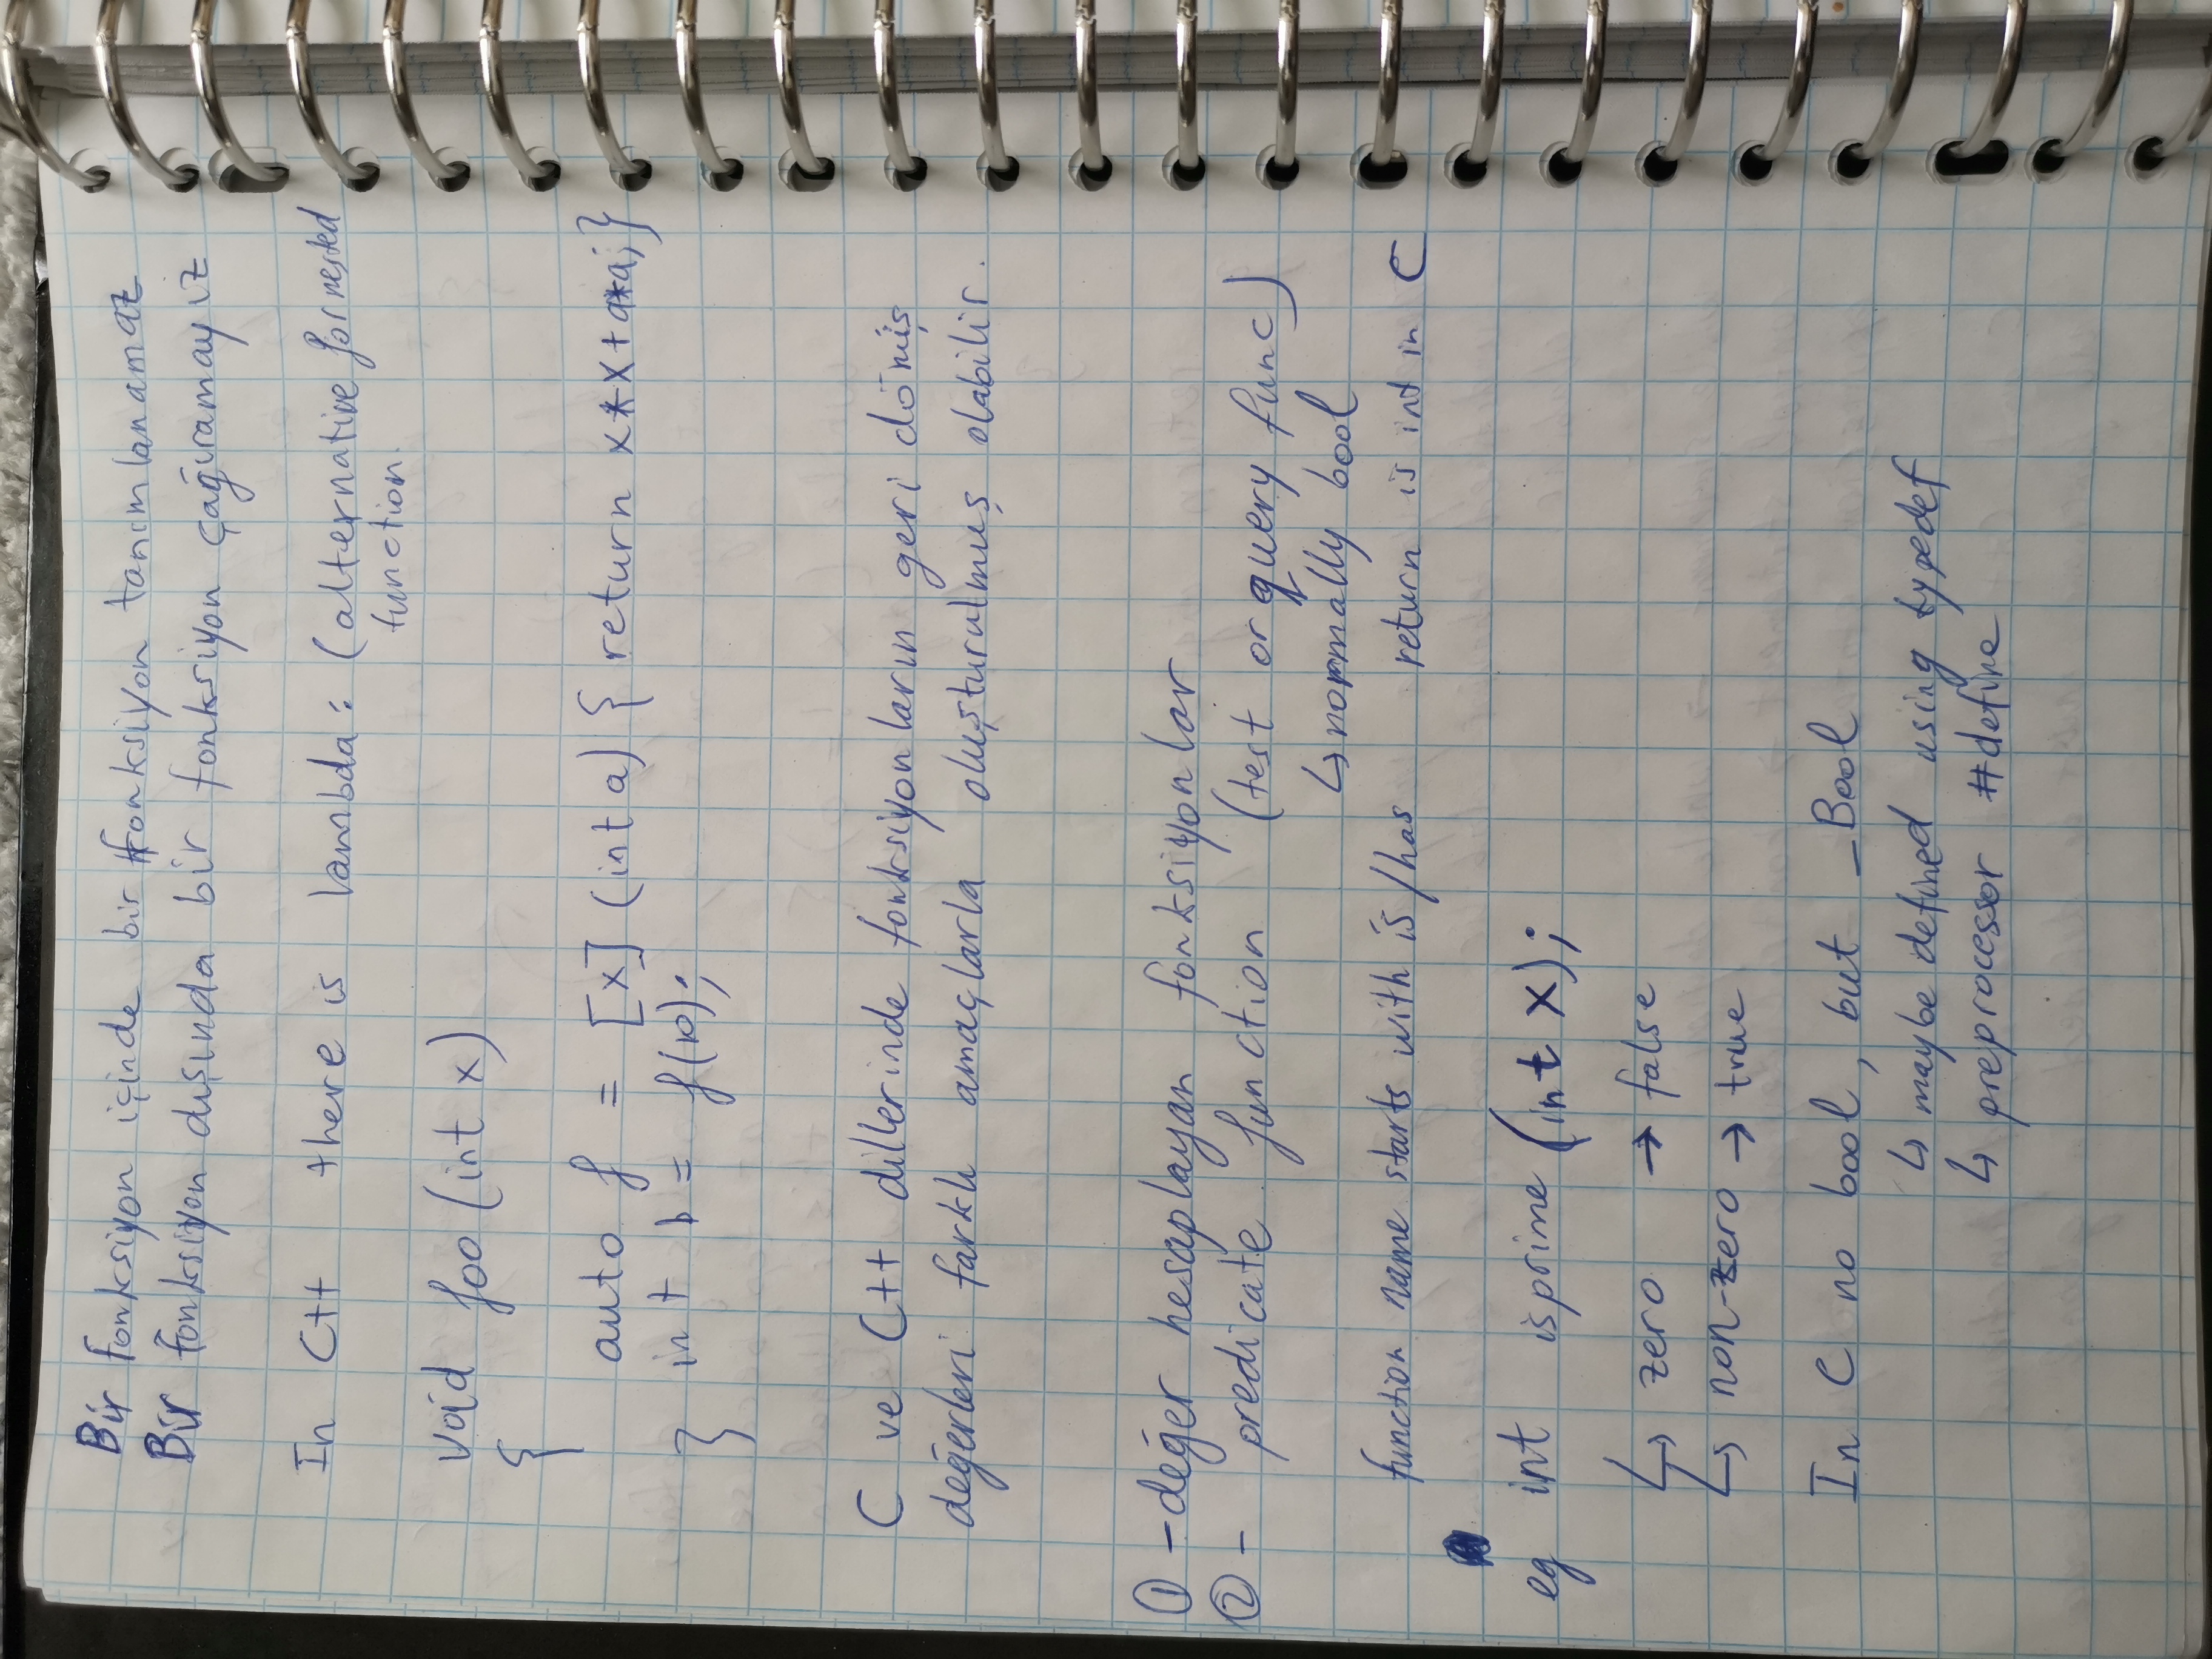 Bir fonksiyon içinde bir fonksiyon tanımlanamaz
Bir fonksiyon dışında bir fonksiyon çağıramayız
In C++ there is lambda: (alternative for nested
function.
void foo (int x)
{
auto f = [x] (int a) { return x*x+a*a;}
int b = f(10);
}
C ve C++ dillerinde fonksiyonların geri dönüş
değerleri farklı amaçlarla oluşturulmuş olabilir.
① - değer hesaplayan fonksiyonlar
② - predicate function (test or query func)
↳ normally bool
function name starts with is/has return is int in C
eg int isprime (int x);
↳ zero → false
↳ non-zero → true
In C no bool, but _Bool
↳ maybe defined using typedef
↳ preprocessor #define